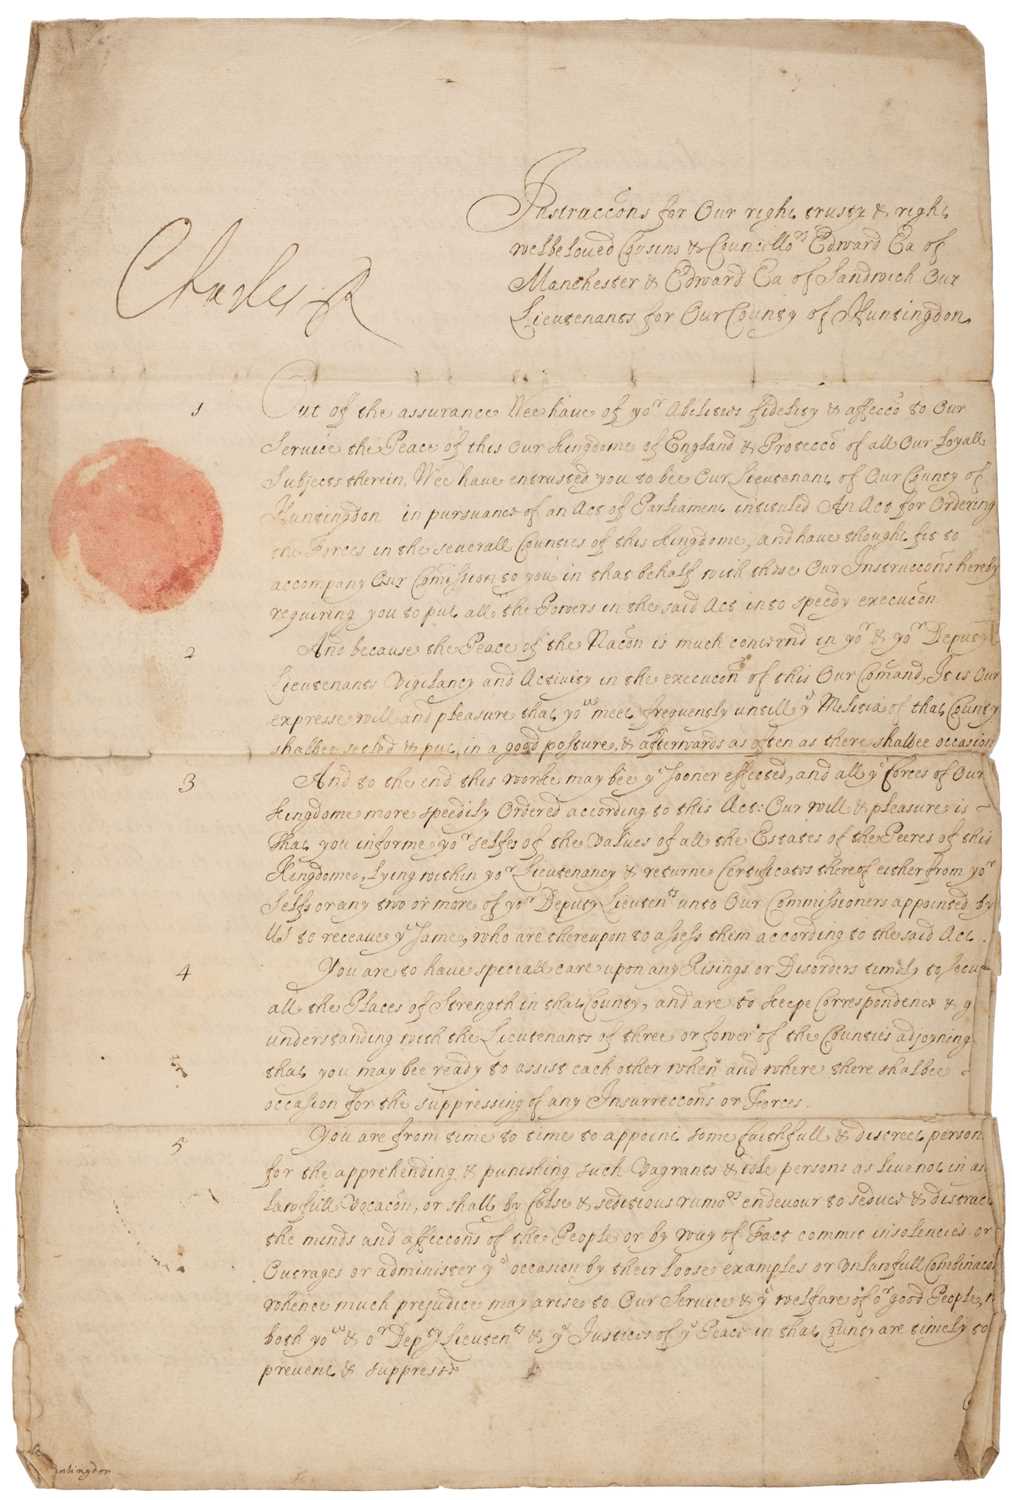 Charles R
Instruccons for Our right trusty & right
welbeloved Cousins & Councello.rs Edward Ea of
Manchester & Edward Ea of Sandwich Our
Lieutenants for Our County of Huntingdon
1 Out of the assurance Wee have of yo.r Abilities fidelity & affecco to Our
Service the Peace of this Our Kingdome of England & Protecco of all Our Loyall
Subjects therein, Wee have entrusted you to bee Our Lieutenant of Our County of
Huntingdon in pursuance of an Act of Parliament intituled An Act for Ordering
the Forces in the severall Counties of this Kingdome, and have thought fit to
accompany Our Comission to you in that behalf with these Our Instruccons hereby
requiring you to put all the Powers in the said Act into speedy execucon
2 And because the Peace of the Nacon is much concernd in yo.r & yo.r Deputy
Lieutenants Vigilancy and Activity in the execucon of this Our Comand, It is Our
expresse will and pleasure that yo.u meet frequently untill y.e Melitia of that County
shalbee setled & put in a good posture, & afterwards as often as there shalbee occasion
3 And to the end this worke may bee y.e sooner effected, and all y.e forces of Our
Kingdome more speedily Ordered according to this Act: Our will & pleasure is
That you informe yo.r selfes of the values of all the Estates of the Peeres of this
Kingdome, Lying within yo.r Lieutenancy & returne Certificates thereof either from yo.r
selfs or any two or more of yo.r Deputy Lieuten.ts unto Our Commissioners appointed by
Us to receave y.e same, who are thereupon to assess them according to the said Act.
4 You are to have speciall care upon any Risings or Disorders timely to secu
all the Places of Strength in that County, and are to keepe Correspondence & g
understanding with the Lieutenants of three or fower of the Counties adjoyning
that you may bee ready to assist each other when and where there shalbee
occasion for the suppressing of any Insurreccons or Forces.
5 You are from time to time to appoint some faithfull & discreet person
for the apprehending & punishing such Vagrants & idle persons as live not in an
lawfull Vocacon, or shall by false & seditious rumo.rs endevour to seduce & distract
the minds and affeccons of the People or by way of Fact commit insolencies or
Outrages or administer y.e occasion by their loose examples or unlawfull Combinaco
whence much prejudice may arise to Our Service & y.e welfare of o.r good People,
both yo.u & o.r Dep.ty Lieuten.ts & y.e Justices of y.e Peace in that County are timely to
prevent & suppresse
ntingdon